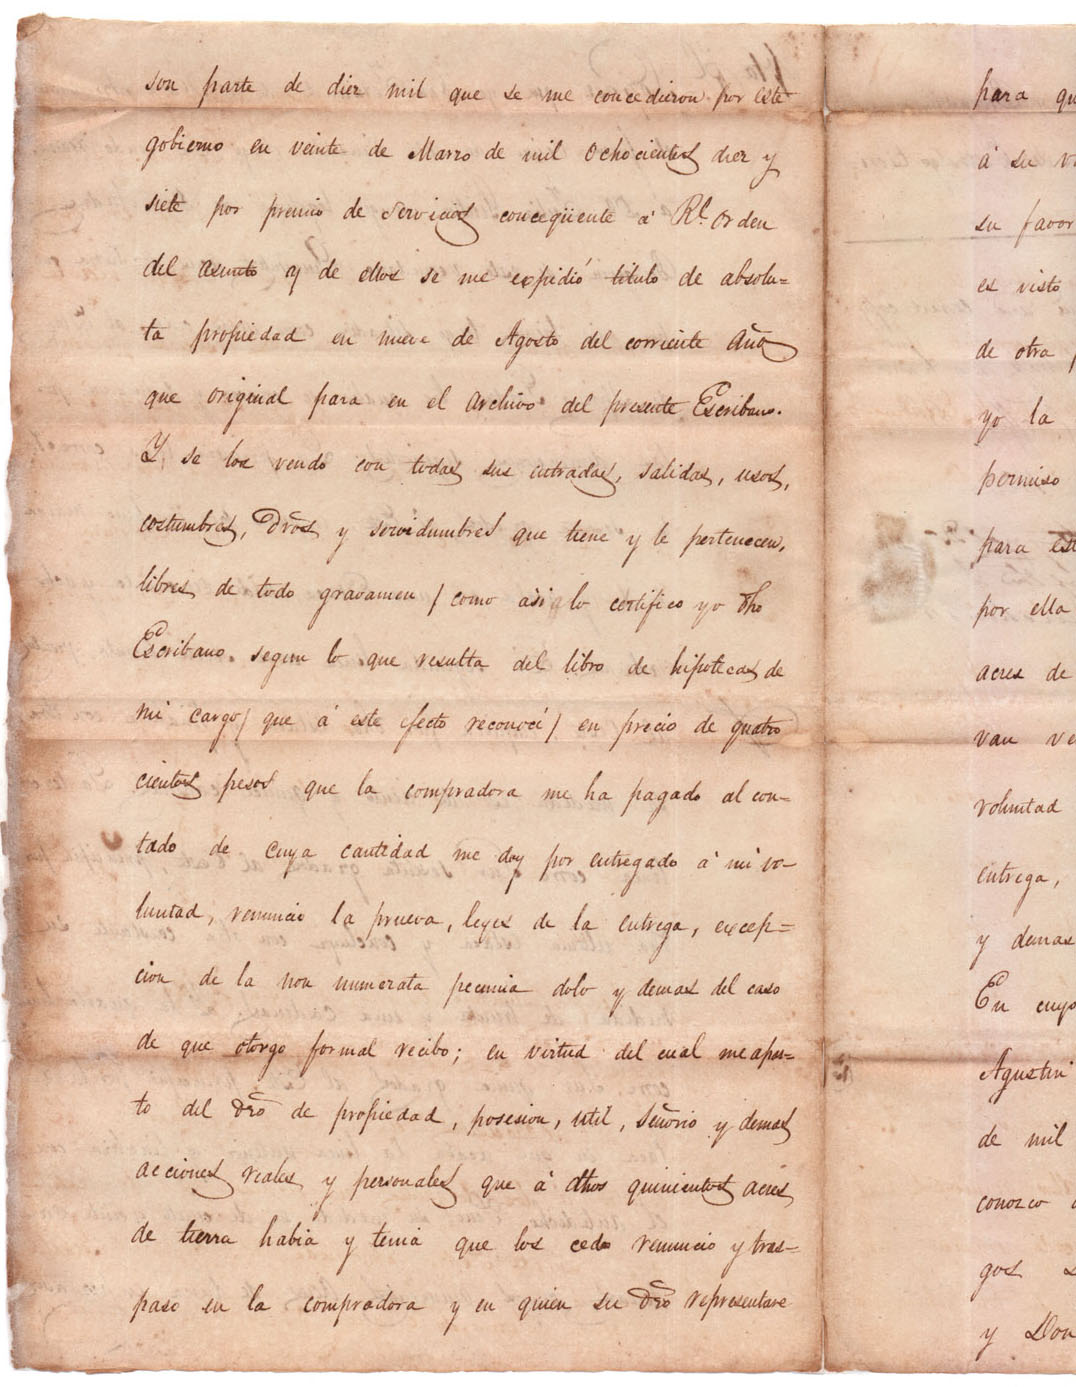 son parte de diez mil que se me concedieron por este
gobierno en veinte de Marzo de mil ochocientos diez y
siete por premio de servicios conceqüente á Rl. orden
del asunto y de ellos se me expidió titulo de absolu=
ta propiedad en nueve de Agosto del corriente año
que original para en el archivo del presente Escribano.
Y se los vendo con todas sus entradas, salidas, usos,
costumbres, Dros y servidumbres que tiene y le pertenecen,
libres de todo gravamen / como asi lo certifico yo dho
Escribano. segun lo que resulta del libro de hipotecas de
mi cargo / que á este efecto reconocí / en precio de quatro
cientos pesos que la compradora me ha pagado al con=
tado de cuya cantidad me doy por entregado á mi vo=
luntad, renuncio la prueva, leyes de la entrega, excep=
cion de la non numerata pecunia dolo y demas del caso
de que otorgo formal recibo; en virtud del cual me apar=
to del dro de propiedad, posesion, util, señorio y demas
acciones reales y personales que á dhos quinientos acres
de tierra habia y tenia que los cedo renuncio y tras=
paso en la compradora y en quien su dro representare
para qu
á su v
su favor
es visto
de otra
yo la
permiso
para est
por ella
acres de
van ve
voluntad
entrega,
y demas
En cuyo
Agustin
de mil
conozco
gos
y Don